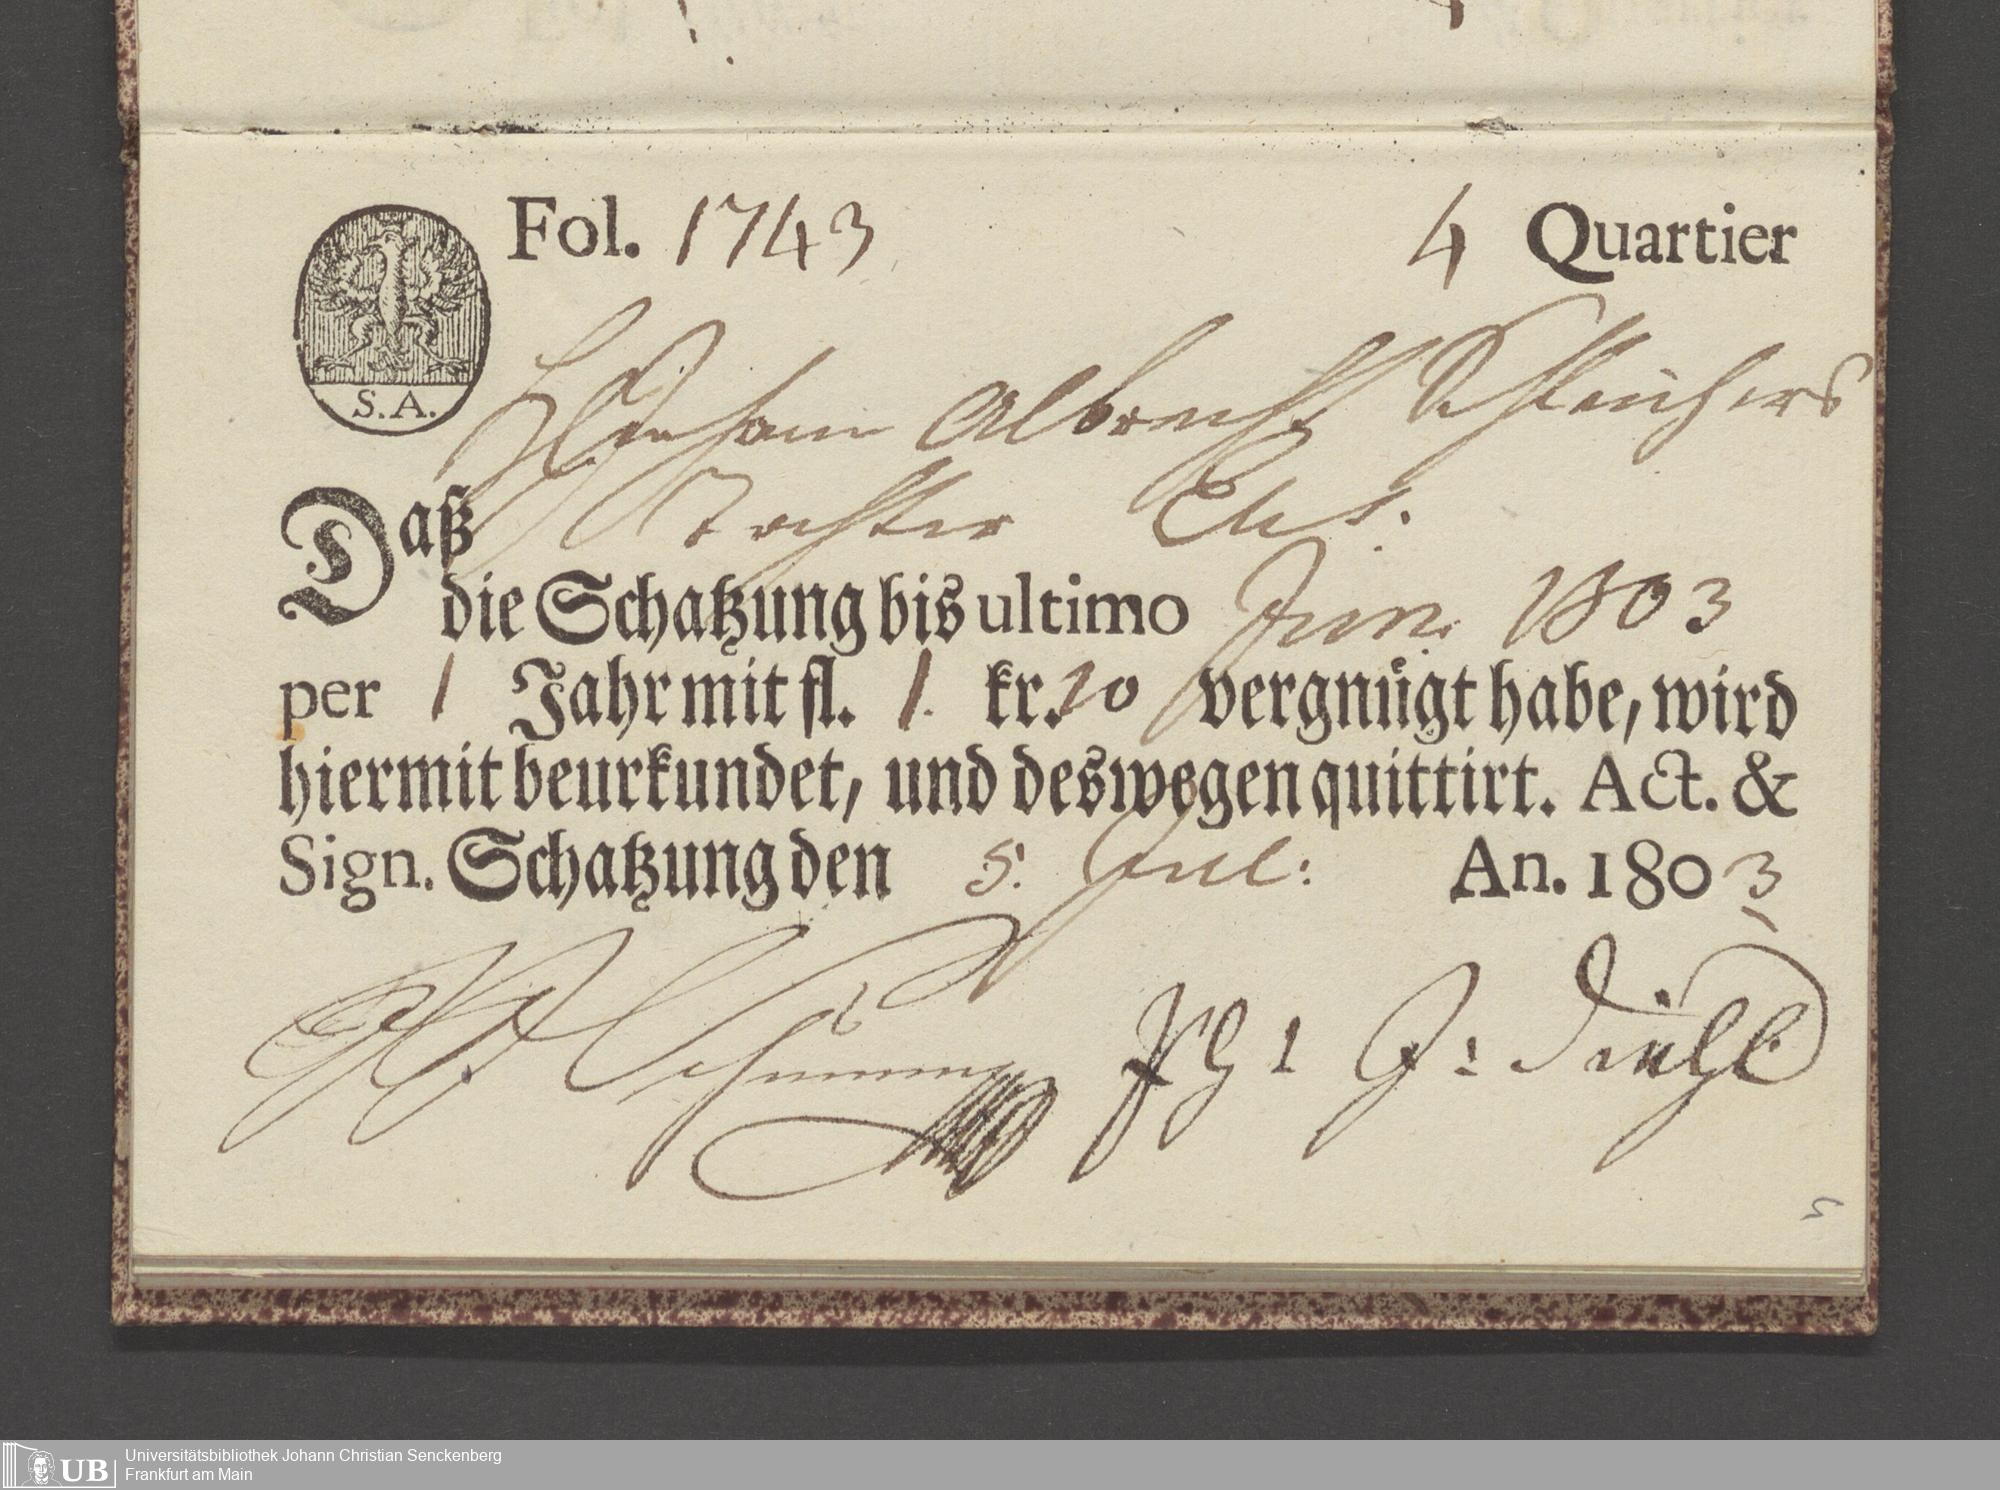 Fol. 1743 4 Quartier
S. A.
Johann Albrecht Schleichers
Daß Tochter
die Schatzung bis ultimo Jun. 1803
per 1 Jahr mit fl. 1. kr. 20 vergnügt habe, wird
hiermit beurkundet, und deswegen quittirt. Act. &
Sign. Schatzung den 5. Jul: An. 1803
5
Universitätsbibliothek Johann Christian Senckenberg
UB Frankfurt am Main